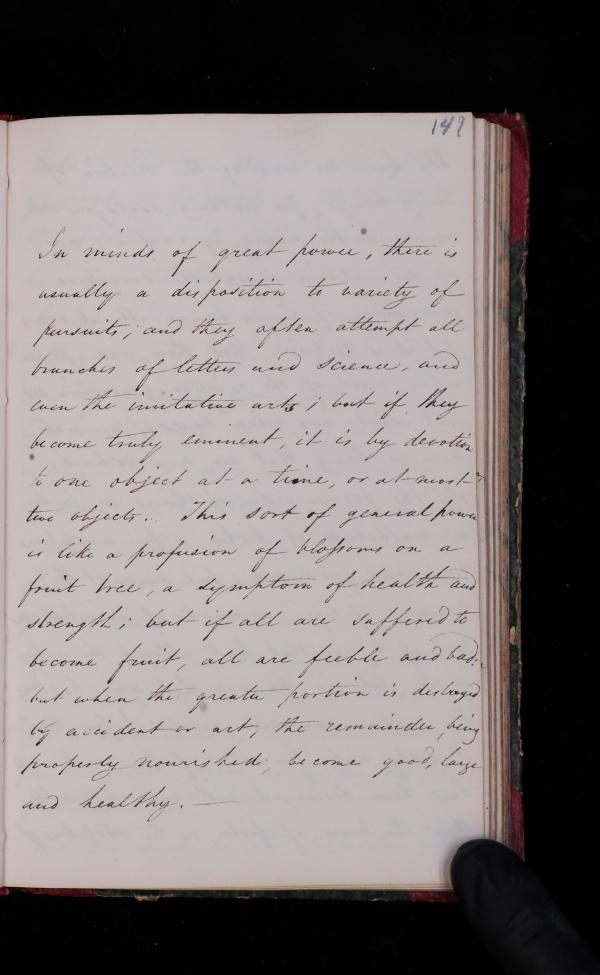 149
In minds of great power, there is
usually a disposition to variety of
pursuits; and they often attempt all
branches of letters and science, and
even the imitative arts; but if they
become truly eminent, it is by devotion
to one object at a time, or at most
two objects. This sort of general power
is like a profusion of blossoms on a
fruit tree, a symptom of health and
strength; but if all are suffered to
become fruit, all are feeble and bad.
but when the greater portion is destroyed
by accident or art, the remainder, being
properly nourished, become good, large
and healthy. —